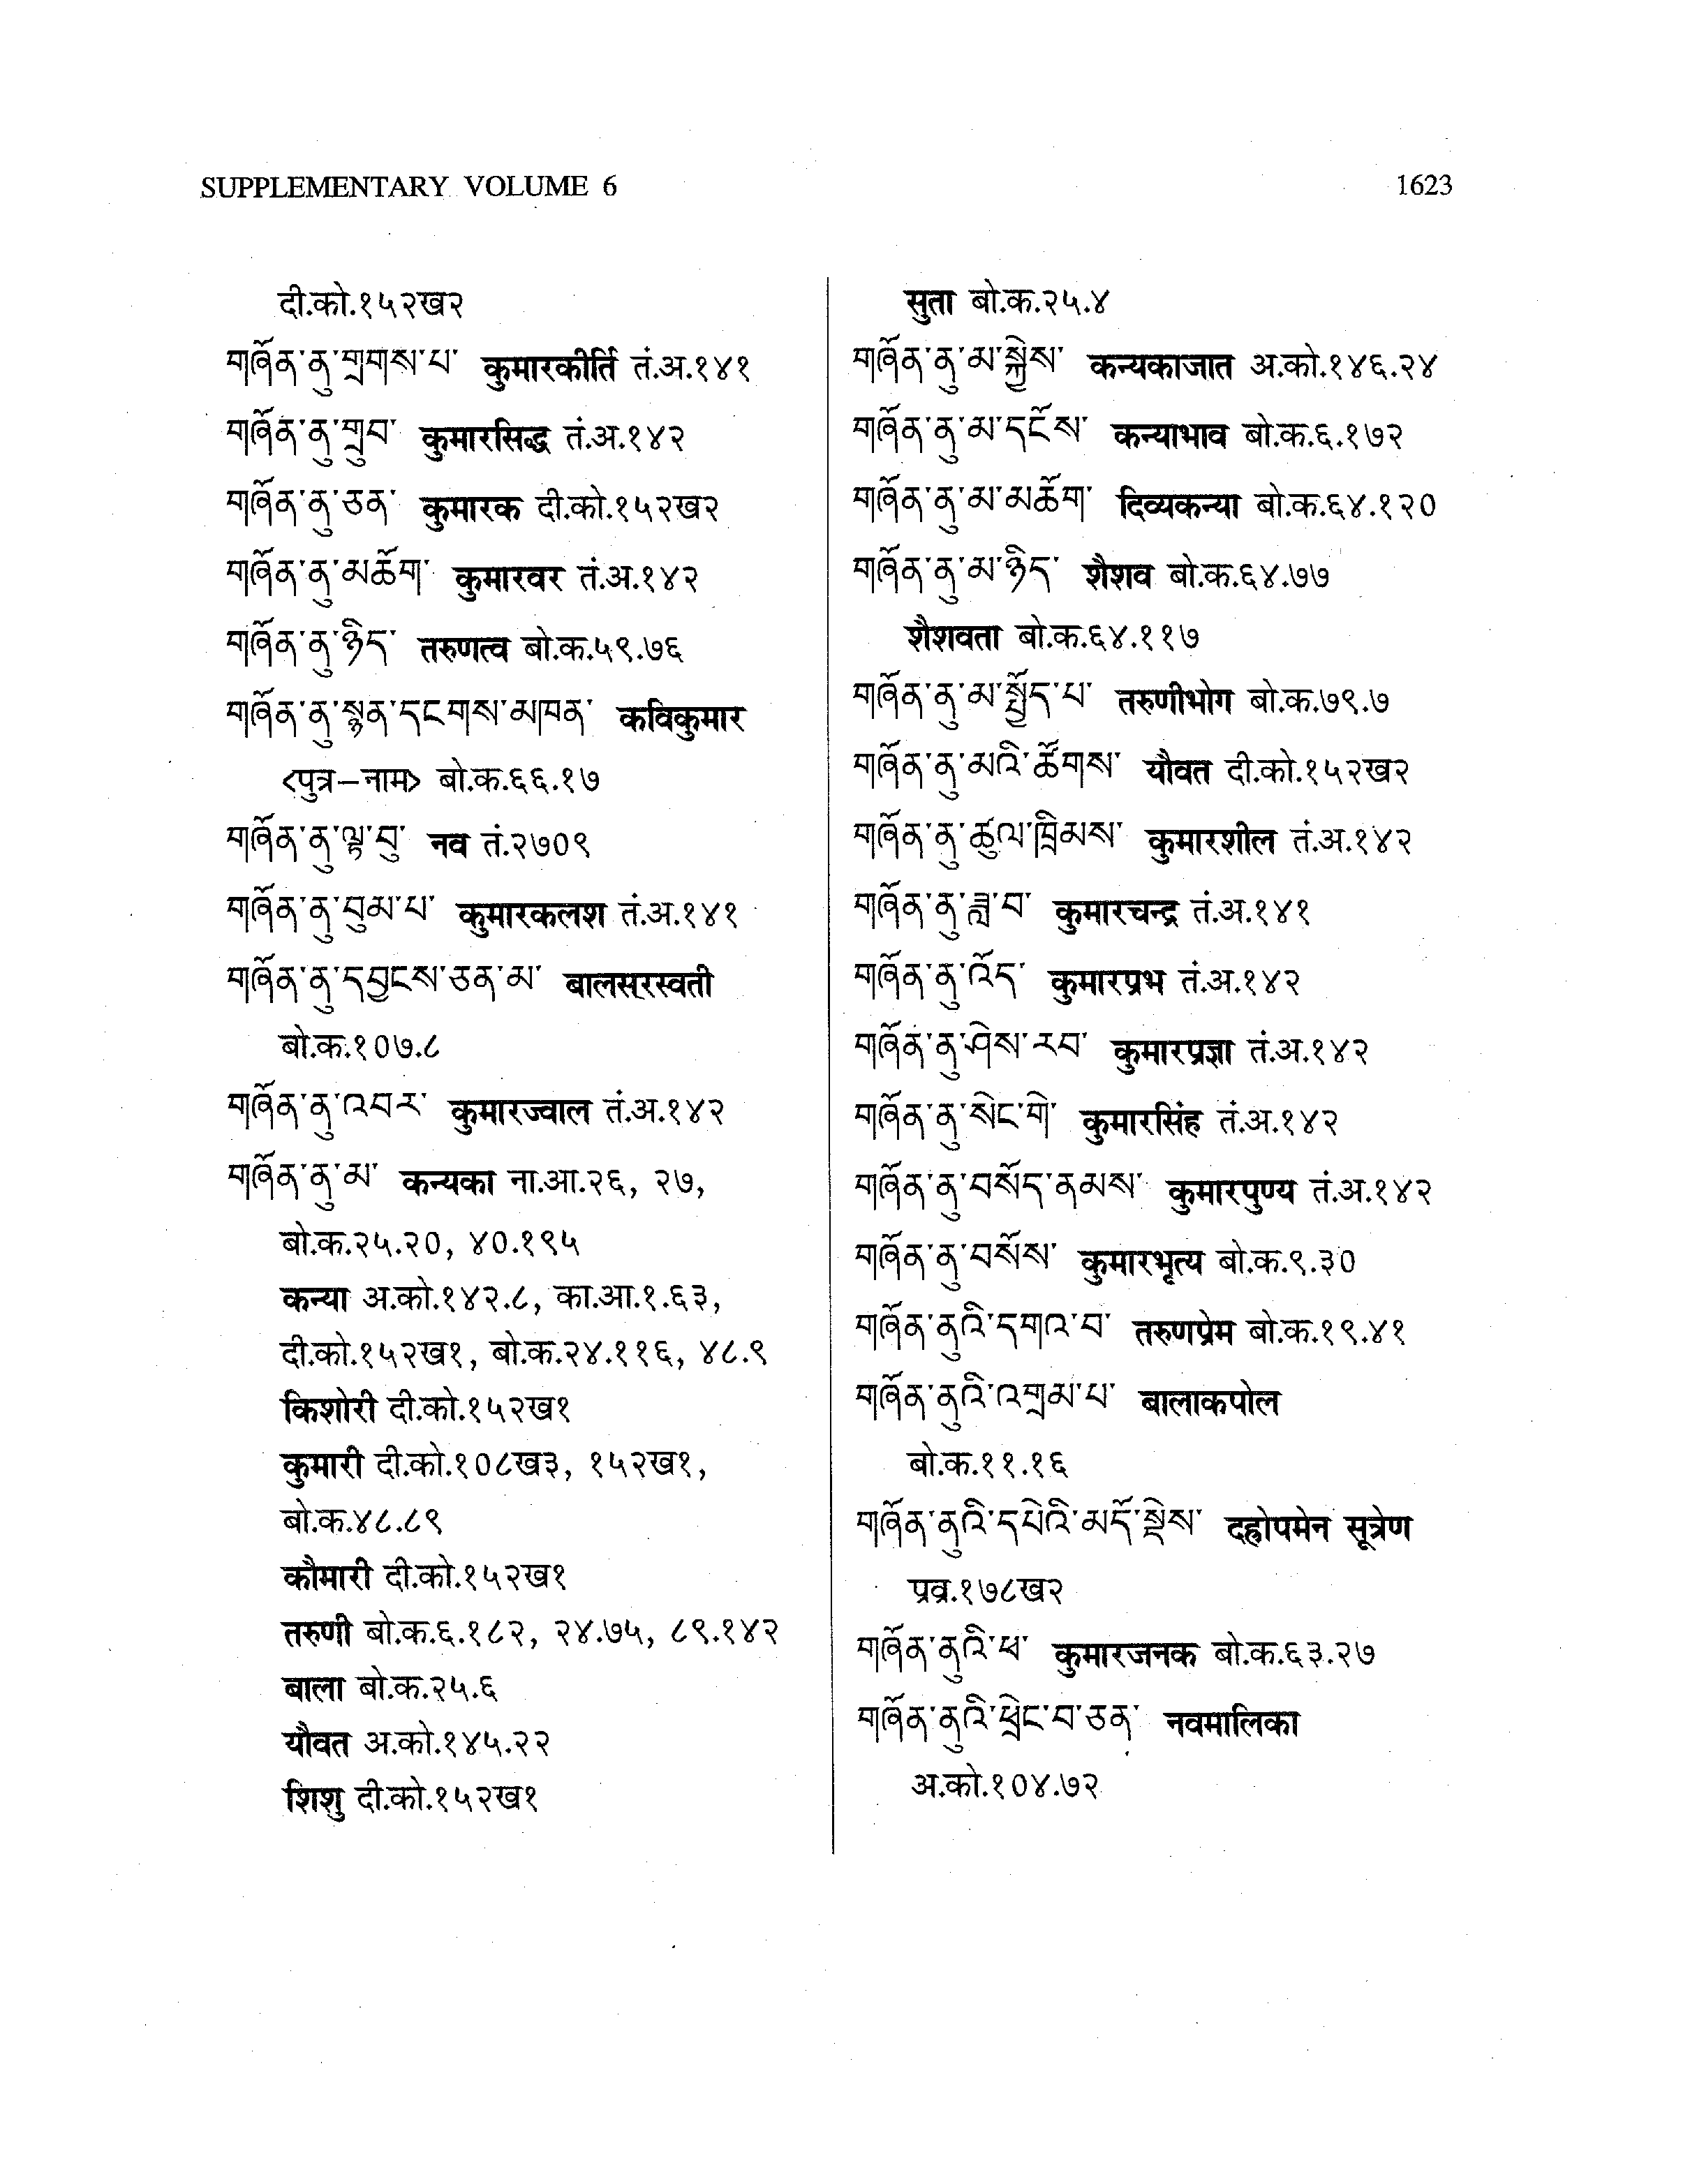 SUPPLEMENTARY VOLUME 6
1623
दी.को.१५२ख२
གཞོན་ནུ་གྲགས་པ་ कुमारकीर्ति तं.अ.१४१
གཞོན་ནུ་གྲུབ་ कुमारसिद्ध तं.अ.१४२
གཞོན་ནུ་ཅན་ कुमारक दी.को.१५२ख२
གཞོན་ནུ་མཆོག་ कुमारवर तं.अ.१४२
གཞོན་ནུ་ཉིད་ तरुणत्व बो.क.५९.७६
གཞོན་ནུ་སྙན་དངགས་མཁན་ कविकुमार
<पुत्र–नाम> बो.क.६६.१७
གཞོན་ནུ་ལྟ་བུ་ नव तं.२७०९
གཞོན་ནུ་བུམ་པ་ कुमारकलश तं.अ.१४१
གཞོན་ནུ་དབྱངས་ཅན་མ་ बालसरस्वती
बो.क.१०७.८
གཞོན་ནུ་འབར་ कुमारज्वाल तं.अ.१४२
གཞོན་ནུ་མ་ कन्यका ना.आ.२६, २७,
बो.क.२५.२०, ४०.१९५
कन्या अ.को.१४२.८, का.आ.१.६३,
दी.को.१५२ख१, बो.क.२४.११६, ४८.९
किशोरी दी.को.१५२ख१
कुमारी दी.को.१०८ख३, १५२ख१,
बो.क.४८.८९
कौमारी दी.को.१५२ख१
तरुणी बो.क.६.१८२, २४.७५, ८९.१४२
बाला बो.क.२५.६
यौवत अ.को.१४५.२२
शिशु दी.को.१५२ख१
सुता बो.क.२५.४
གཞོན་ནུ་མ་སྐྱེས་ कन्यकाजात अ.को.१४६.२४
གཞོན་ནུ་མ་དངོས་ कन्याभाव बो.क.६.१७२
གཞོན་ནུ་མ་མཆོག་ दिव्यकन्या बो.क.६४.१२०
གཞོན་ནུ་མ་ཉིད་ शैशव बो.क.६४.७७
शैशवता बो.क.६४.११७
གཞོན་ནུ་མ་སྤྱོད་པ་ तरुणीभोग बो.क.७९.७
གཞོན་ནུ་མའི་ཚོགས་ यौवत दी.को.१५२ख२
གཞོན་ནུ་ཚུལ་ཁྲིམས་ कुमारशील तं.अ.१४२
གཞོན་ནུ་ཟླ་བ་ कुमारचन्द्र तं.अ.१४१
གཞོན་ནུ་འོད་ कुमारप्रभ तं.अ.१४२
གཞོན་ནུ་ཤེས་རབ་ कुमारप्रज्ञा तं.अ.१४२
གཞོན་ནུ་སེང་གེ་ कुमारसिंह तं.अ.१४२
གཞོན་ནུ་བསོད་ནམས་ कुमारपुण्य तं.अ.१४२
གཞོན་ནུ་བསོས་ कुमारभृत्य बो.क.९.३०
གཞོན་ནུའི་དགའ་བ་ तरुणप्रेम बो.क.१९.४१
གཞོན་ནུའི་འགྲམ་པ་ बालाकपोल
बो.क.११.१६
གཞོན་ནུའི་དཔེའི་མདོ་སྡེས་ दह्रोपमेन सूत्रेण
प्रव्र.१७८ख२
གཞོན་ནུའི་ཕ་ कुमारजनक बो.क.६३.२७
གཞོན་ནུའི་ཕྲེང་བ་ཅན་ नवमालिका
अ.को.१०४.७२